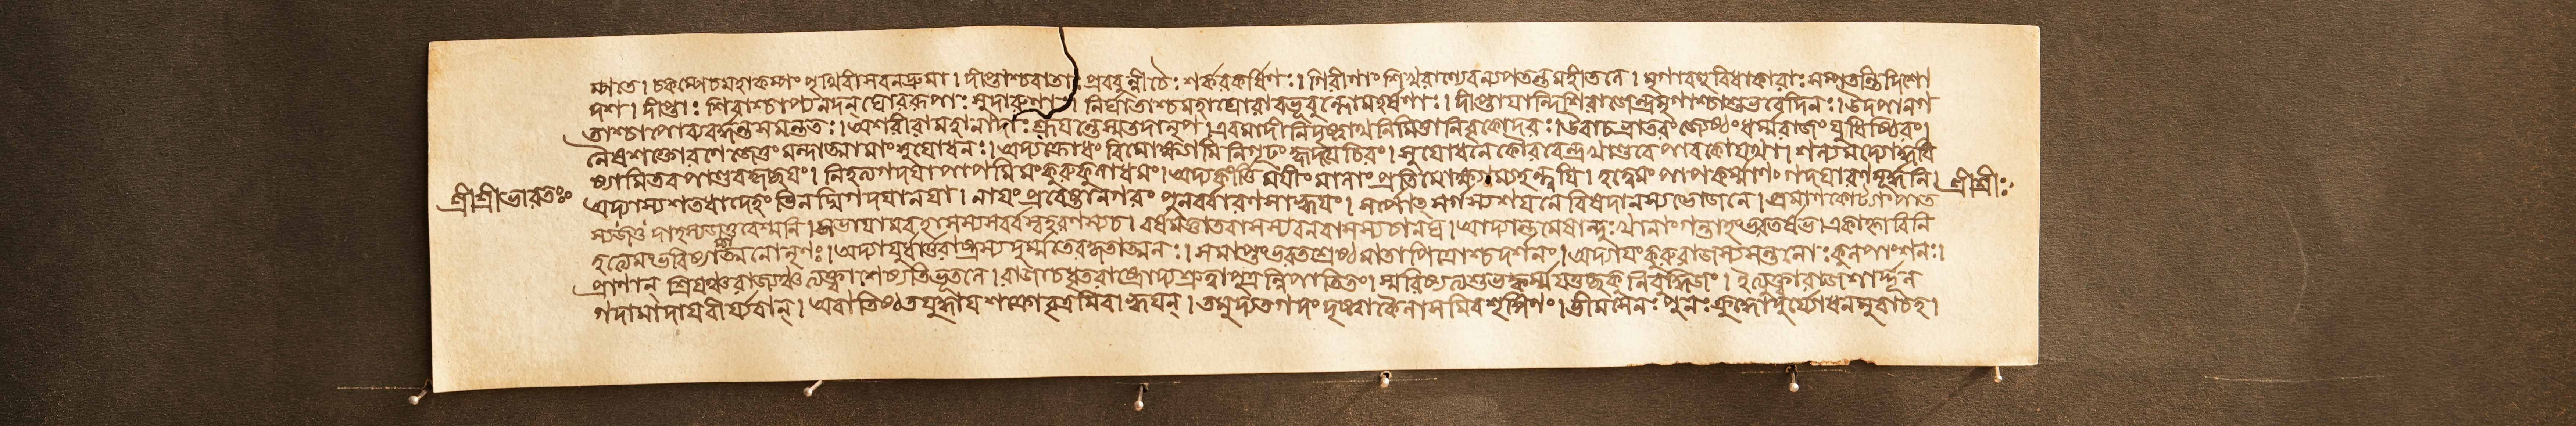 ম্পাতে। চকম্পেচমহাকম্পং পৃথিবীসবনদ্রুমা। দীপ্তাশ্চবাতাঃ প্রববুর্নীচৈঃ শর্করকর্ষিণঃ। গিরীণাং শিখরাণ্যেবন্যপতন্তমহীতলে। মৃগাবহুবিধাকারাঃ সম্পতন্তিদিশো
দশ। দীপ্তাঃ শিবাশ্চাপ্যনদন্ ঘোররূপাঃ সুদারুণাঃ। নির্ঘাতাশ্চমহাঘোরাবভূবুর্লোমহর্ষণাঃ। দীপ্তাযান্দিশিরাজেন্দ্রমৃগাশ্চাশুভবেদিনঃ। উদপানগ
তাশ্চাপোব্যবর্দ্ধন্তসমন্ততঃ। অশরীরামহানাদাঃ শ্রূযন্তেস্মতদানৃপ। এবমাদীনিদৃষ্ট্বাথনিমিত্তানিবৃকোদরঃ। উবাচভ্রাতরংজ্যেষ্ঠংধর্ম্মরাজং যুধিষ্ঠিরং।
নৈষশক্তোরণেজেতুং মন্দাত্মামাংসুযোধনঃ। অদ্যক্রোধং বিমোক্ষ্যামিনিগূঢং হৃদযেচিরং। সুযোধনেকৌরবেন্দ্রেখাণ্ডবেপাবকোযথা। শল্যমদ্যোদ্ধরি
ষ্যামিতবপাণ্ডবহৃচ্ছযং। নিহত্যগদযাপাপমিমংকুরুকুলাধমং। অদ্যকীর্ত্তিমযীং মালাং প্রতিমোক্ষ্যাম্যহন্ত্বযি। হত্বেমং পাপকর্ম্মাণং গদযারণমূর্দ্ধনি।
শ্রীশ্রীভারতঃ
অদ্যাস্যশতধাদেহং ভিনদ্মিগদযানযা। নাযংপ্রবেষ্টানগরং পুনর্ব্বারণসাহ্বযং। সর্পোৎসর্গস্যশযনেবিষদানস্যভোজনে। প্রমাণকোট্যাংপাত
শ্রীশ্রীঃ
স্যজতুগৃহদাহস্যবেশ্মনি। সভাযামবহাসস্যসর্ব্বস্বহরণস্যচ। বর্ষমজ্ঞাতবাসস্যবনবাসস্যচানঘ। অদ্যান্তমেষান্দুঃখানাংগন্তাহংভরতর্ষভ। একাহ্নাবিনি
হত্যেমংভবিষ্যাম্যাত্মনোনৃণঃ। অদ্যাযুর্ধার্ত্তরাষ্ট্রস্যদুর্ম্মতেরকৃতাত্মনঃ। সমাপ্তংভরতশ্রেষ্ঠমাতাপিত্রোশ্চদর্শনং। অদ্যাযংকুরুরাজস্যসন্তনোঃকুলপাংশনঃ।
প্রাণান্ শ্রিযঞ্চরাজ্যঞ্চ ত্যক্ত্বাশেষ্যতিভূতলে। রাজাচধৃতরাষ্ট্রোদ্যশ্রুত্বাপুত্রন্নিপাতিতং। স্মরিষ্যত্যশুভঙ্কর্ম্মযত্তচ্ছকুনিবুদ্ধিজং। ইত্যুক্ত্বারাজশার্দ্দূল
গদামাদাযবীর্য্যবান্। অবাতিষ্ঠতযুদ্ধাযশক্রোবৃত্রমিবাহ্বযন্। তমুদ্যতগদংদৃষ্ট্বাকৈলাসমিবশৃঙ্গিণং। ভীমসেনঃ পুনঃক্রুদ্ধোদুর্য্যোধনমুবাচহ।